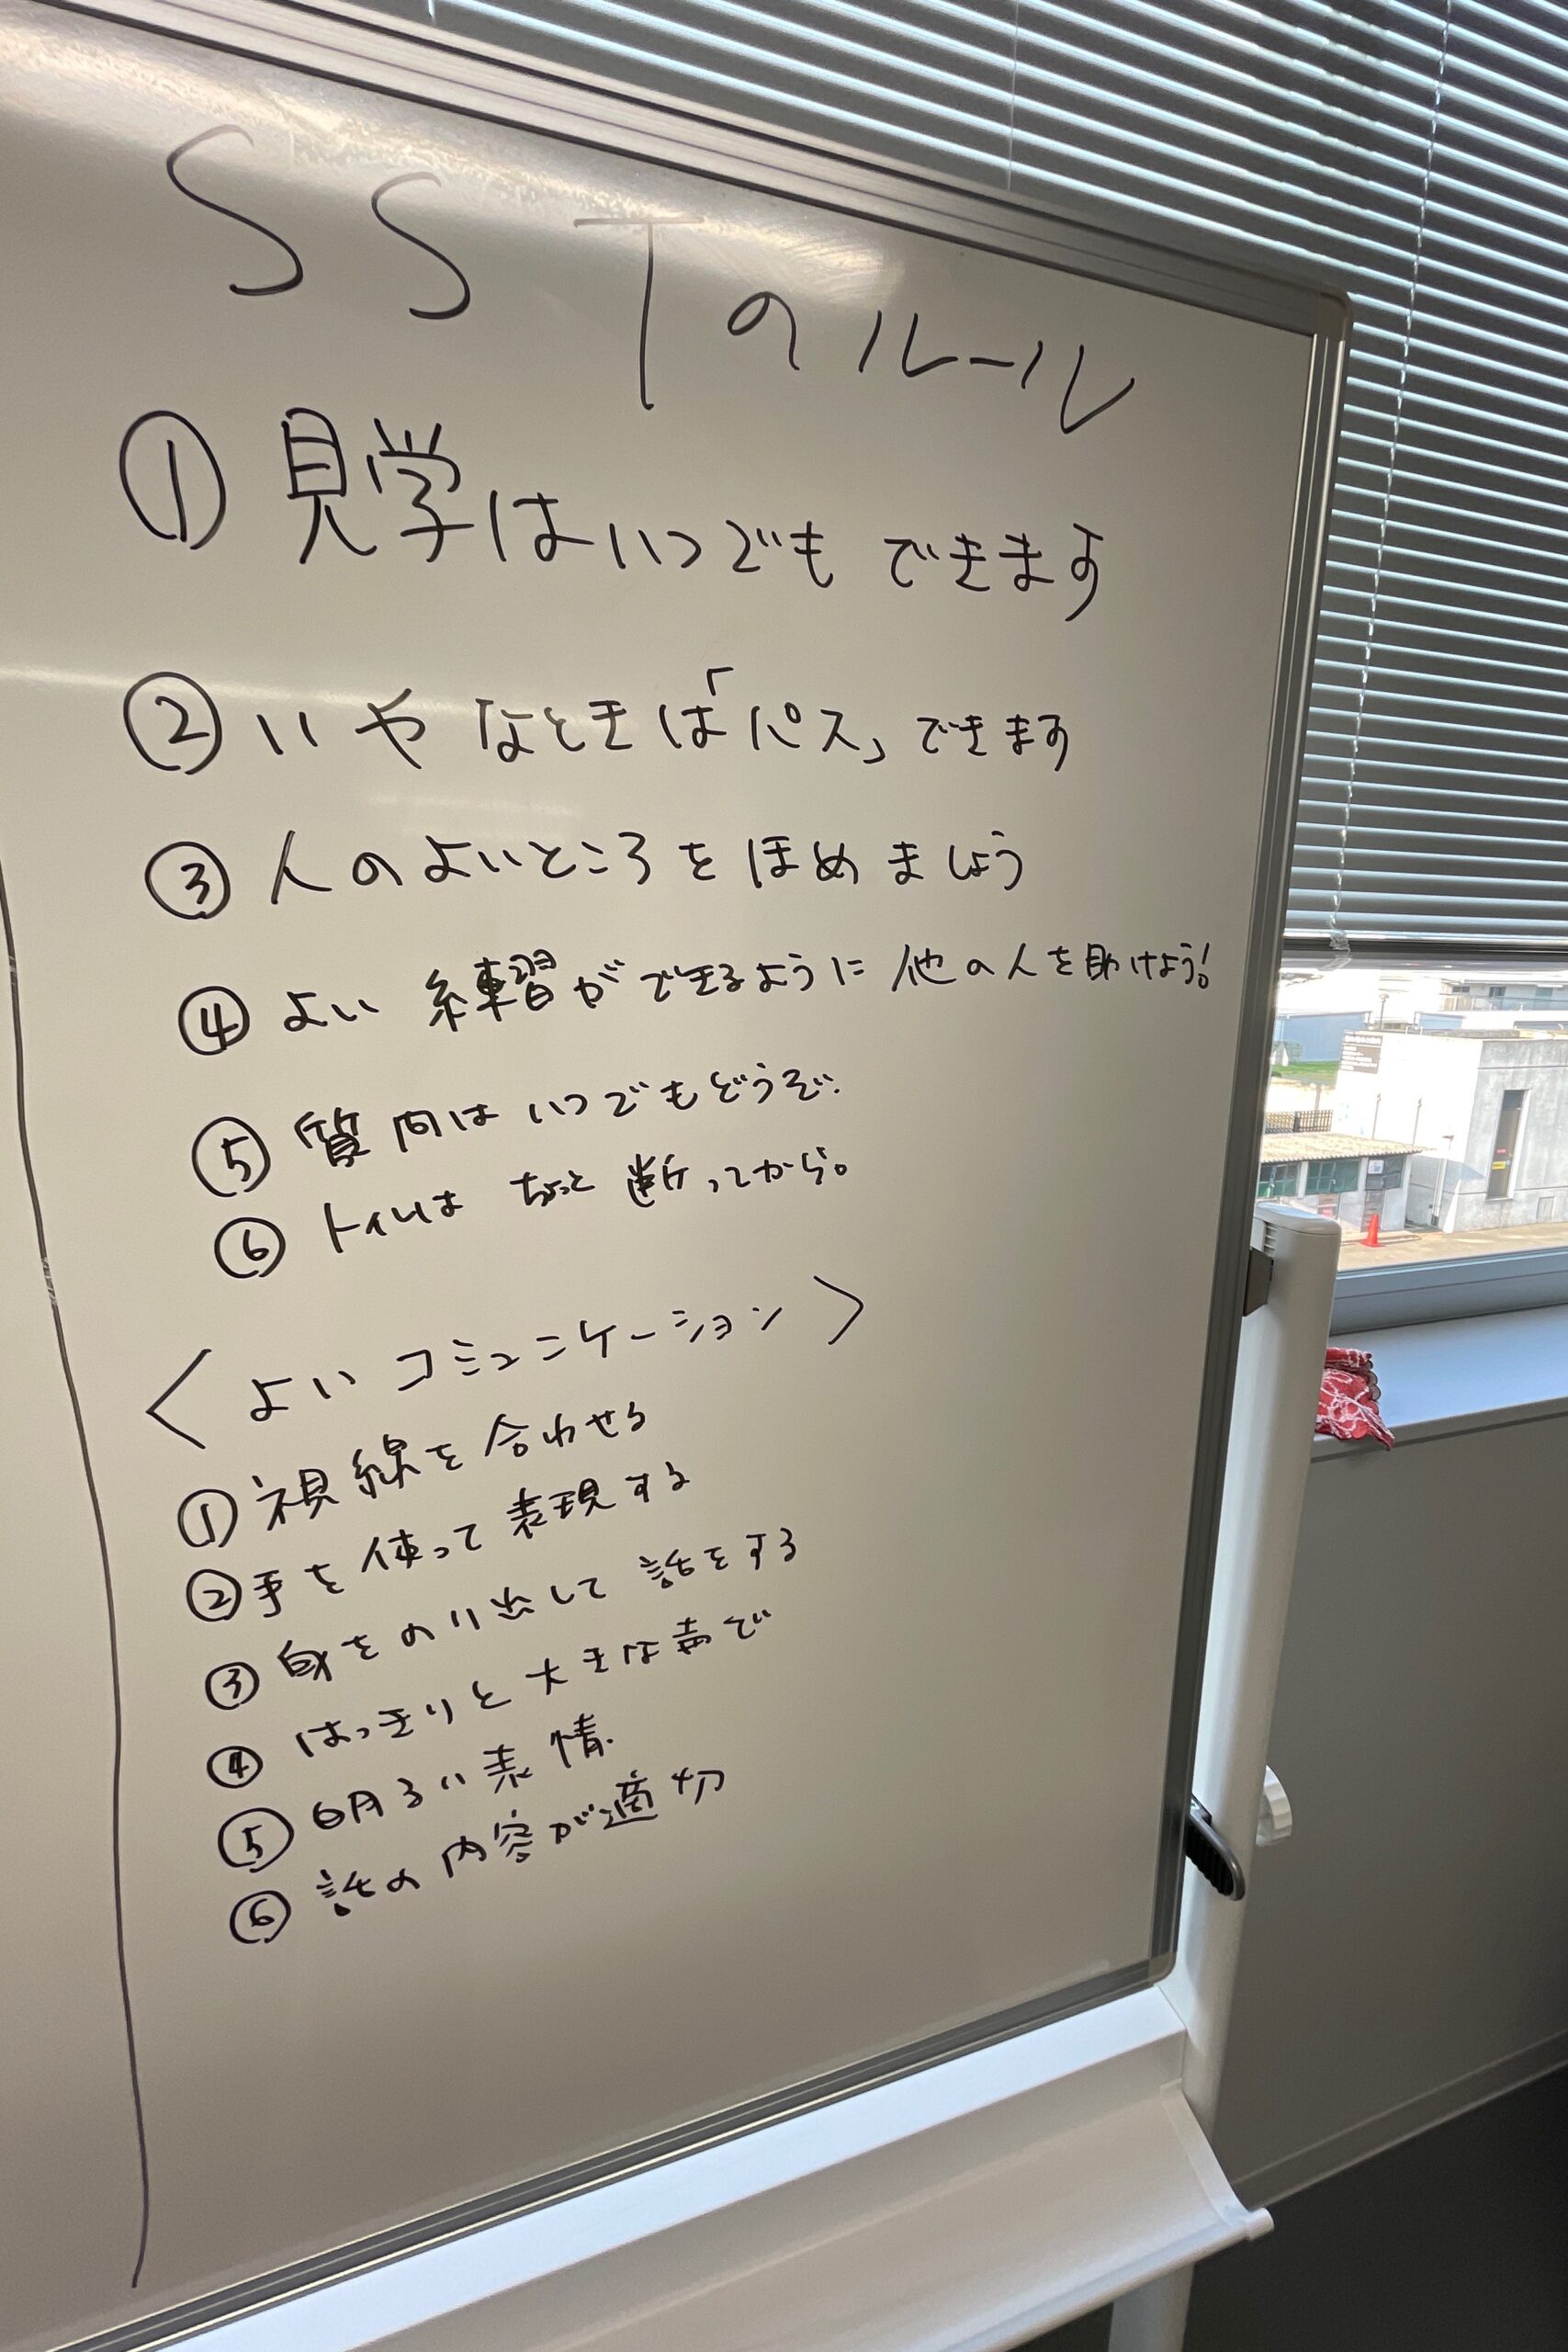 SSTのルール
① 見学はいつでもできます
② いやなときは「パス」できます
③ 人のよいところをほめましょう
④ よい練習ができるように他の人を助けよう!
⑤ 質問はいつでもどうぞ.
⑥ トイレはちょっと断ってから。
<よいコミュニケーション>
① 視線を合わせる
② 手を使って表現する
③ 身をのり出して話をする
④ はっきりと大きな声で
⑤ 明るい表情.
⑥ 話の内容が適切